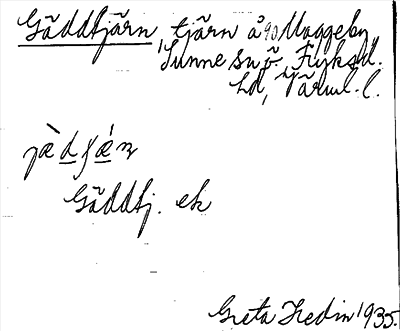 Gäddtjärn, tjärn å go Maggeby
Sunne sn, Fryksd.
hd, Värml. l.
jæ̀d ʃǽn
Gäddtj. ek
Greta Hedin 1935.